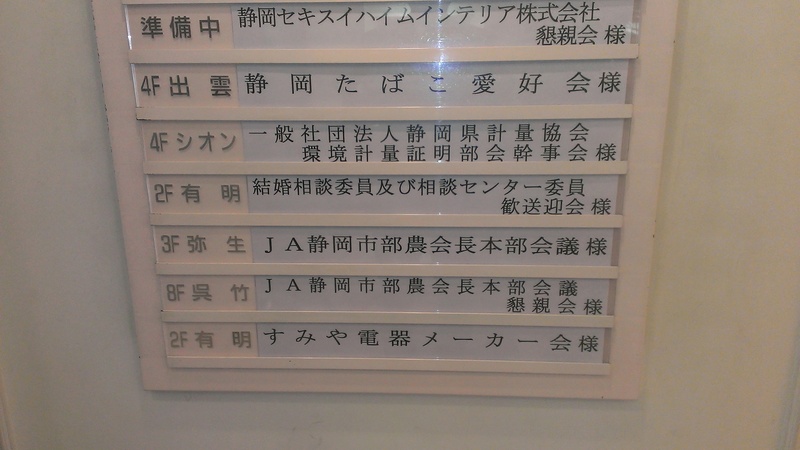 準備中
静岡セキスイハイムインテリア株式会社
懇親会 様
4F 出雲
静岡たばこ愛好会様
4F シオン
一般社団法人静岡県計量協会
環境計量証明部会幹事会様
2F 有明
結婚相談委員及び相談センター委員
歓送迎会 様
3F 弥生
JA静岡市部農会長本部会議様
8F 呉竹
JA静岡市部農会長本部会議
懇親会様
2F 有明
すみや電器メーカー会様